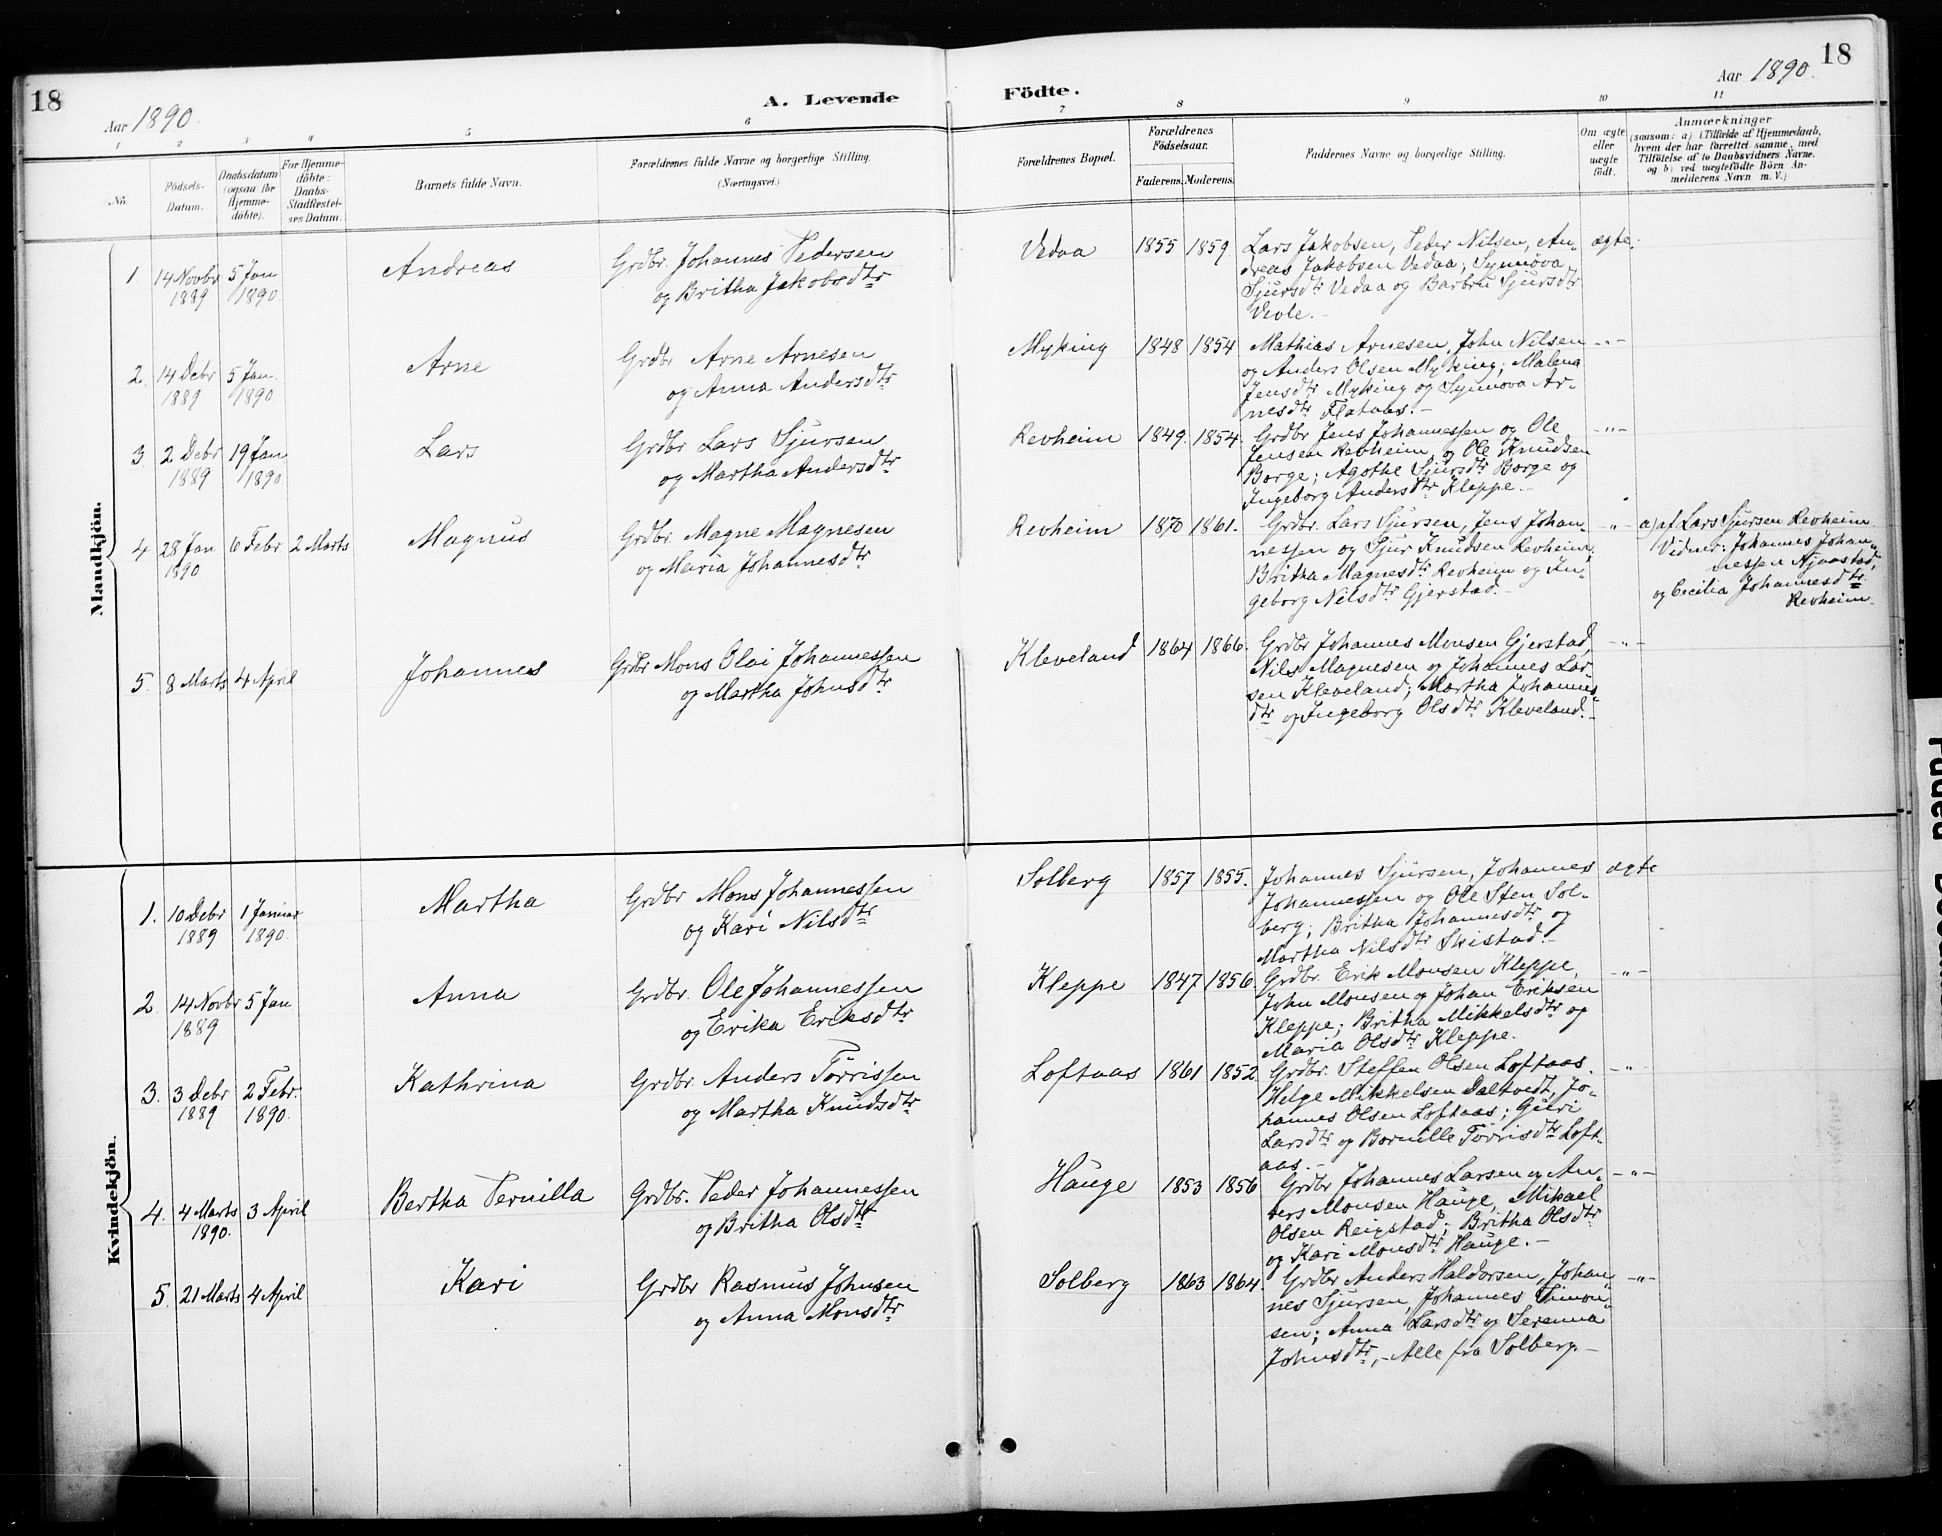 18
Aar 1890.
A. Levende
Födte.
Aar 1890.
18
1
2
3
4
5
6
7
8
9
10
11
No.
Födsels-
Datum.
Daabsdatum
(ogsaa for
Hjemme-
döbte).
For Hjemme-
döbte:
Daabs-
Stadfæstel-
ses Datum.
Barnets fulde Navn.
Forældrenes fulde Navne og borgerlige Stilling.
(Næringsvei.)
Forældrenes Bopæl.
Forældrenes
Födselsaar.
Faderens.
Moderens.
Faddernes Navne og borgerlige Stilling.
Om ægte
eller
uægte
födt.
Anmærkninger
(saasom: a) i Tilfælde af Hjemmedaab,
hvem der har forrettet samme, med
Tilföielse af to Daabsvidners Navne.
og b) ved uægtefödte Börn An-
melderens Navn m. V.)
Mandkjön.
1 14 Novbr 5 Jan Andreas Grdbr. Johannes Pedersen
1889 1890 og Britha Jakobsdtr
Vedaa 1855 1859 Lars Jakobsen, Peder Nilsen, An- ægte.
dreas Jakobsen Vedaa; Synnöva
Sjursdtr Vedaa og Barbru Sjursdtr
Veole.-
2. 14 Debr 5 Jan. Arne Grdbr Arne Arnesen
1889. 1890 og Anna Andersdtr
Myking 1848 1854 Mathias Arnesen, John Nilsen -"-
og Anders Olsen Myking; Malena
Jensdtr Myking og Synnova Ar-
nesdtr Flataas.-
3. 2 Debr 19 Jan Lars Grdbr Lars Sjursen
1889 1890. og Martha Andersdtr
Revheim 1849. 1854. Grdbr Jens Johannessen og Ole -"-
Jensen Revheim, og Ole Knudsen
Borge; Agathe Sjursdtr Borge og
Ingeborg Andersdtr Kleppe.-
4 28 Jan 6 Febr 2 Marts Magnus Grdbr. Magne Magnesen
1890 og Maria Johannesdtr
Revheim 1870 1861. Grdbr. Lars Sjursen, Jens Johan- -"- a) af Lars Sjursen Revheim
nessen og Sjur Knudsen Revheim; Vidner: Johannes Johan-
Britha Magnesdtr Revheim og In- nessen Njaastad,
geborg Nilsdtr Gjerstad.- og Cecilia Johannesdtr
Revheim.
5. 8 Marts 4 April Johannes Grdbr Mons Olai Johannessen
og Martha Johnsdtr
Kleveland 1864 1866. Grdbr Johannes Monsen Gjerstad, -"-
Nils Magnesen og Johannes Lar-
sen Kleveland; Martha Johannes-
dtr og Ingeborg Olsdtr Kleveland.-
Kvindekjön.
1. 10 Debr 1 Januar Martha Grdbr Mons Johannessen
1889 1890. og Kari Nilsdtr
Solberg 1857 1855. Johannes Sjursen, Johannes ægte
Johannessen og Ole Sten Sol-
berg; Britha Johannesdtr og
Martha Nilsdtr Skistad.-
2 14 Novbr 5 Jan Anna Grdbr. Ole Johannessen
1889 og Erika Eriksdtr
Kleppe 1847 1856. Grdbr. Erik Monsen Kleppe, -"-
John Monsen og Johan Eriksen
Kleppe; Britha Mikkelsdtr og
Maria Olsdtr Kleppe.
3. 3 Debr 2 Febr. Kathrina Grdbr. Anders Törrissen
1889 1890. og Martha Knudsdtr
Loftaas 1861 1852 Grdbr. Steffen Olsen Loftaas. -"-
Helge Mikkelsen Daltvedt, Jo-
hannes Olsen Loftaas; Guri
Larsdtr og Bornille Törrisdtr Loft-
aas.-
4. 4 Marts 3 April Bertha Pernilla Grdbr. Peder Johannessen
1890. og Britha Olsdtr
Hauge 1853 1856 Grdbr Johannes Larsen og An- -"-
ders Monsen Hauge, Mikael
Olsen Reigstad; Britha Olsdtr
og Kari Monsdtr Hauge.-
5. 21 Marts 4 April Kari Grdbr Rasmus Johnsen
og Anna Monsdtr
Solberg 1863 1864. Grdbr Anders Haldorsen, Johan- -"-
nes Sjursen, Johannes Simon-
sen; Anna Larsdtr og Serenna
Johnsdtr, - Alle fra Solberg.-